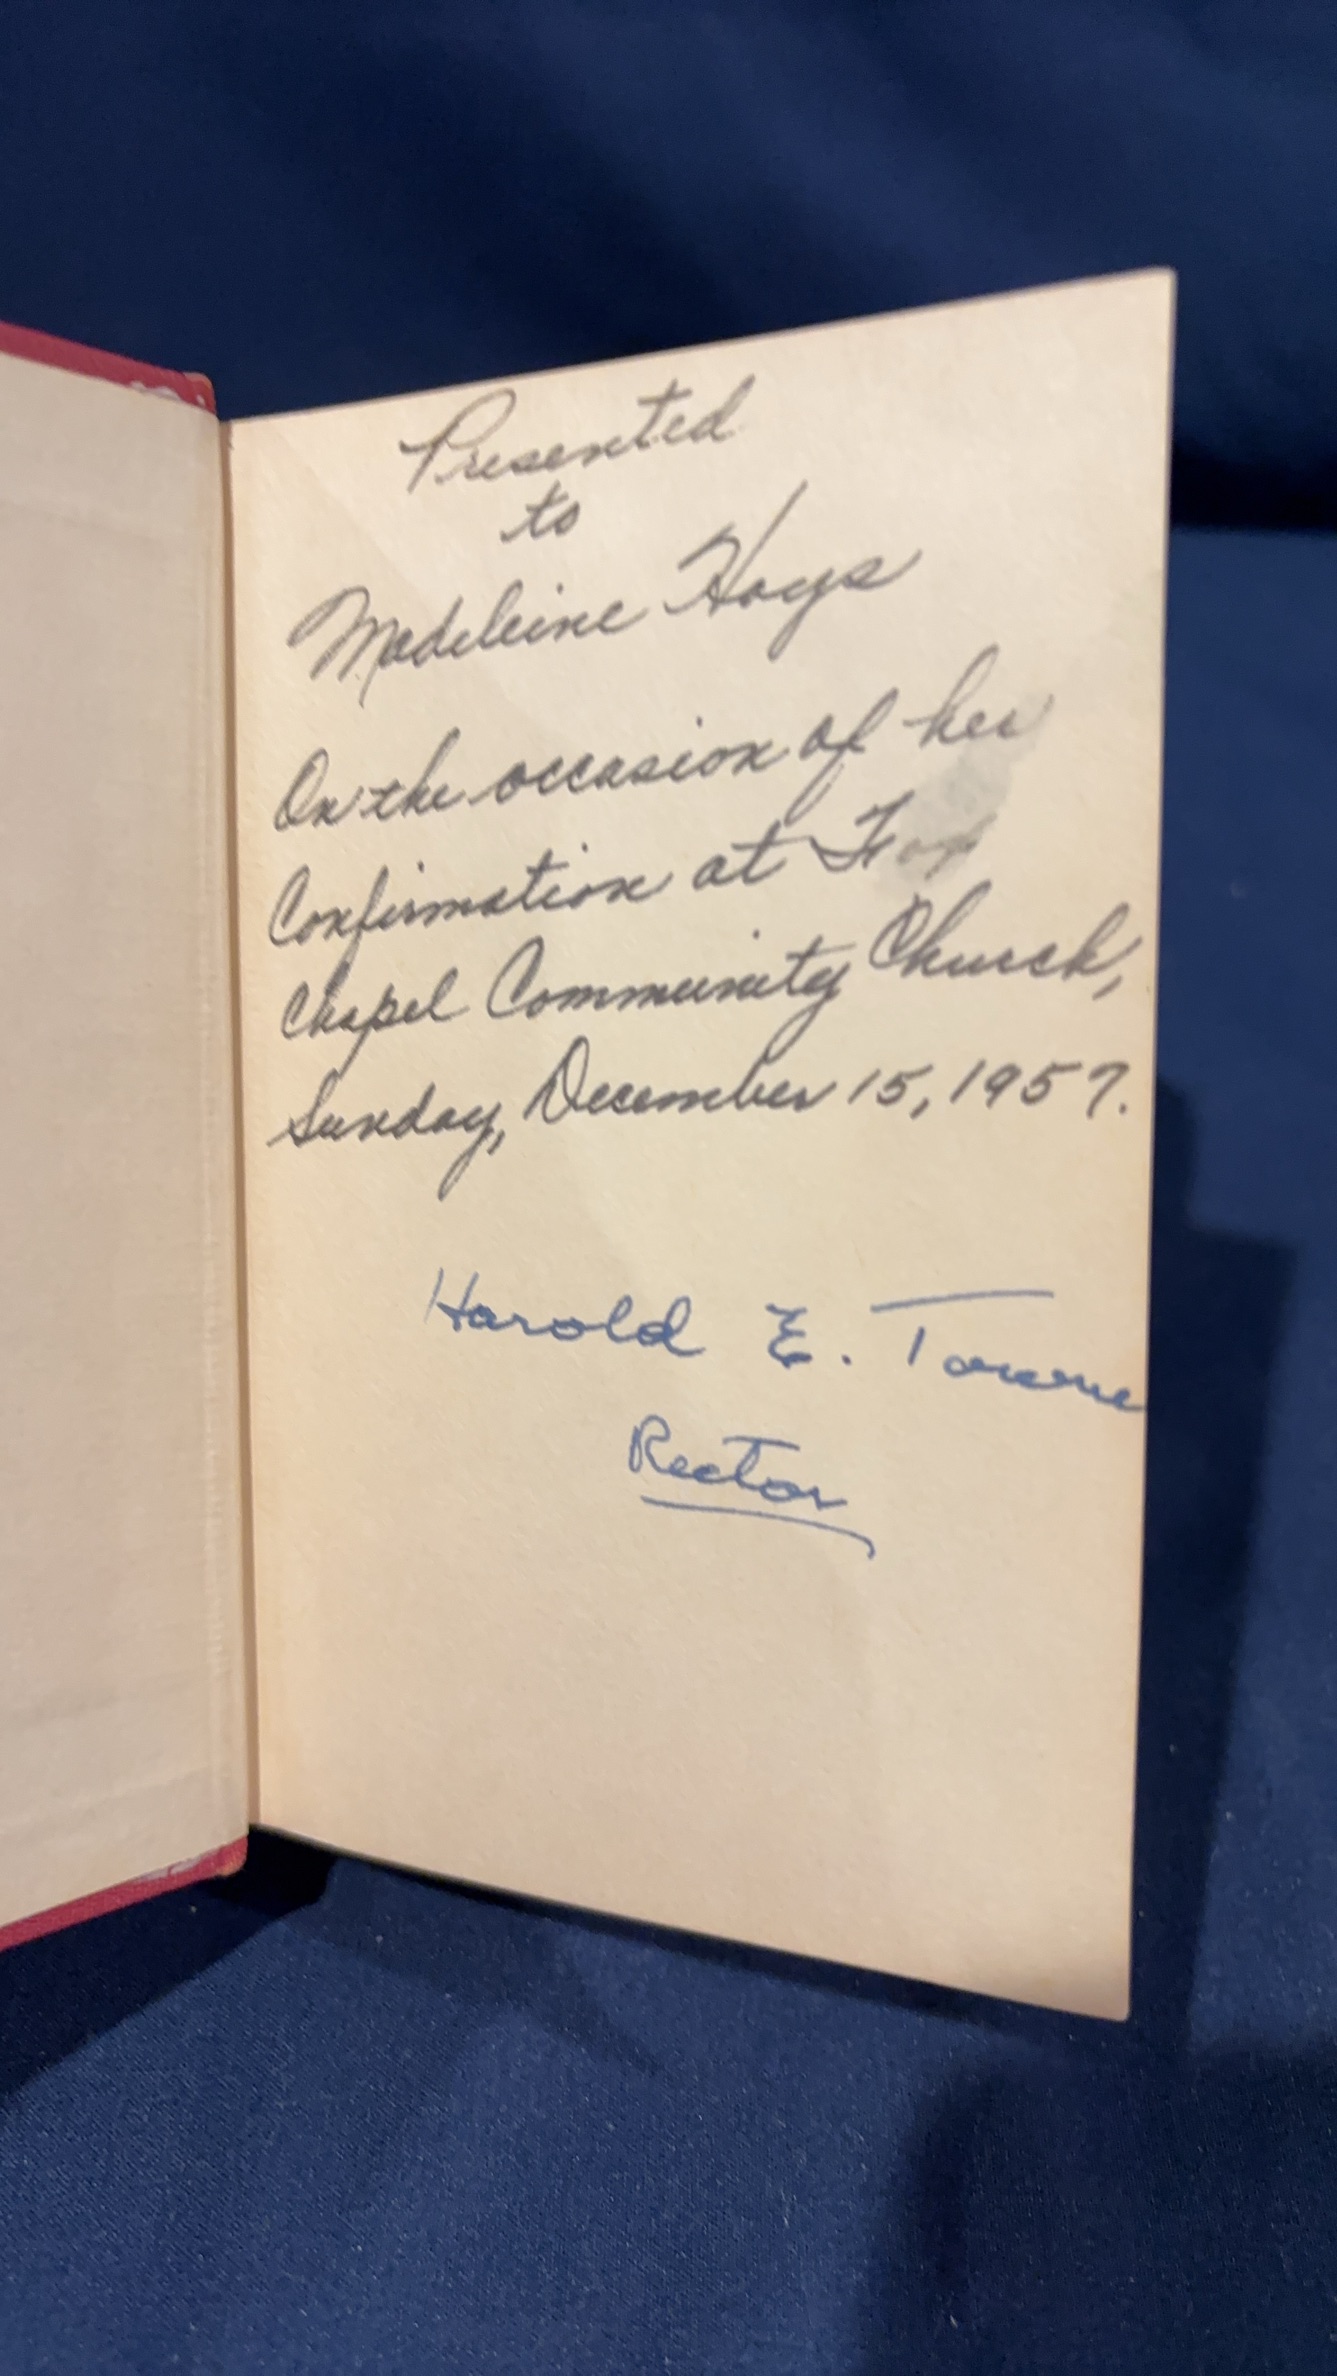 Presented
to
Madeleine Hays
On the occasion of her
Confirmation at Fox
Chapel Community Church,
Sunday, December 15, 1957.
Harold E. Towne
Rector